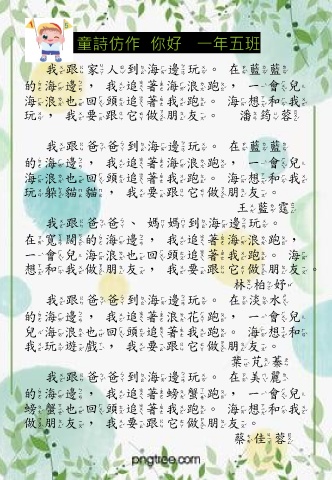 童詩仿作 你好 一年五班
我跟家人到海邊玩。在藍藍
的海邊，我追著海浪跑，一會兒
海浪也回頭追著我跑。海想和我
玩，我要跟它做朋友。 潘筠蓉
我跟爸爸到海邊玩。在藍藍
的海邊，我追著海浪跑，一會兒
海浪也回頭追著我跑。海想和我
玩躲貓貓，我要跟它做朋友。
王藍霆
我跟爸爸、媽媽到海邊玩。
在寬闊的海邊，我追著海浪跑，
一會兒海浪也回頭追著我跑。海
想和我做朋友，我要跟它做朋友。
林柏妤
我跟爸爸到海邊玩。在淡水
的海邊，我追著浪花跑，一會兒
兒海浪也回頭追著我跑。海想和
我玩遊戲，我要跟它做朋友。
葉芃蓁
我跟爸爸到海邊玩。在美麗
的海邊，我追著螃蟹跑，一會兒
螃蟹也回頭追著我跑。海想和我
做朋友，我要跟它做朋友。
蔡佳蓉
pngtree.com